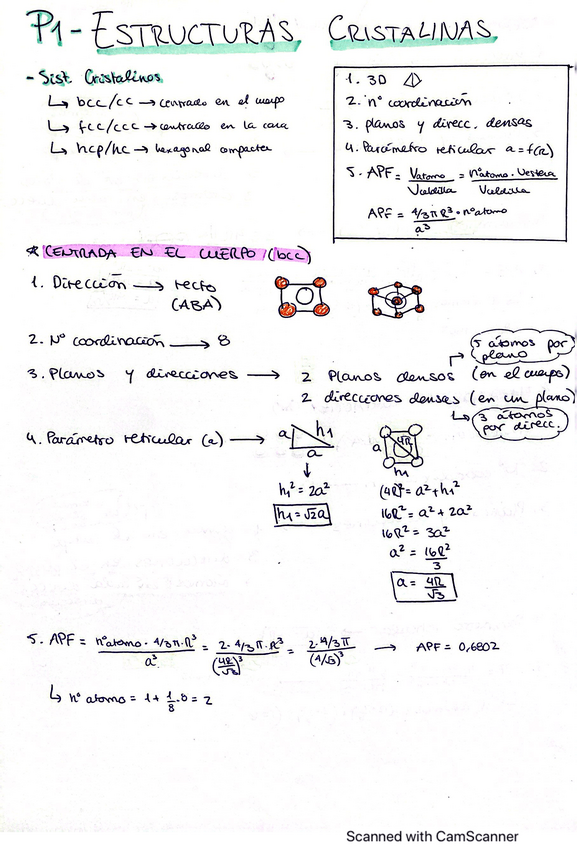 P1- ESTRUCTURAS CRISTALINAS
- Sist Cristalinos
↳ bcc/cc → centrado en el cuerpo
↳ fcc/ccc → centrado en la cara
↳ hcp/hc → hexagonal compacta
1. 3D
2. nº coordinación
3. planos y direcc. densas
4. Parámetro reticular a = f(R)
5. APF = Vátomo / Vceldilla = nºátomo · Vesfera / Vceldilla
APF = 4/3 π R³ · nºatomo / a³
* CENTRADA EN EL CUERPO (bcc)
1. Dirección → recto
(ABA)
2. Nº coordinación → 8
3. Planos y direcciones → 2 Planos densos (en el cuerpo)
5 átomos por plano
2 direcciones densas (en un plano)
3 átomos por direcc.
4. Parámetro reticular (a) →
a h₁
a
h₁² = 2a²
h₁ = √2a
a 4R
h₁
(4R)² = a² + h₁²
16R² = a² + 2a²
16R² = 3a²
a² = 16R² / 3
a = 4R / √3
5. APF = nºatomo · 4/3 π · R³ / a³ = 2 · 4/3 π · R³ / (4R/√3)³ = 2 · 4/3 π / (4/√3)³ → APF = 0,6802
↳ nº atomo = 1 + 1/8 · 8 = 2
Scanned with CamScanner